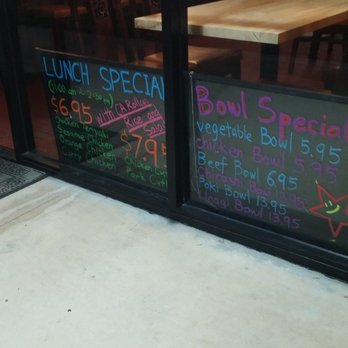 LUNCH SPECIAL
(11:00 am - 2:30 pm)
$6.95
with CA Roll
Rice and
Salad
$7.95
Sesame Chicken
Orange Chicken
Curry Chicken
Chicken Cut
Pork Cut
Bowl Special
vegetable Bowl 5.95
chicken Bowl 5.95
Beef Bowl 6.95
Chirashi Bowl
Poki Bowl 13.95
Unagi Bowl 13.95